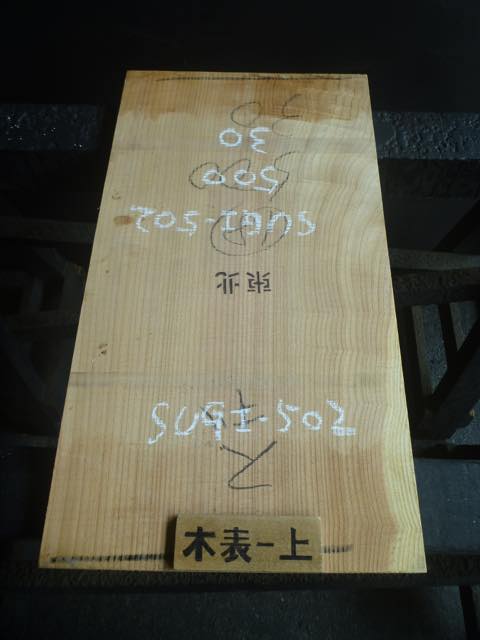 30
30
500
SUGI-502
東北
SUGI-502
スギ
木表-上